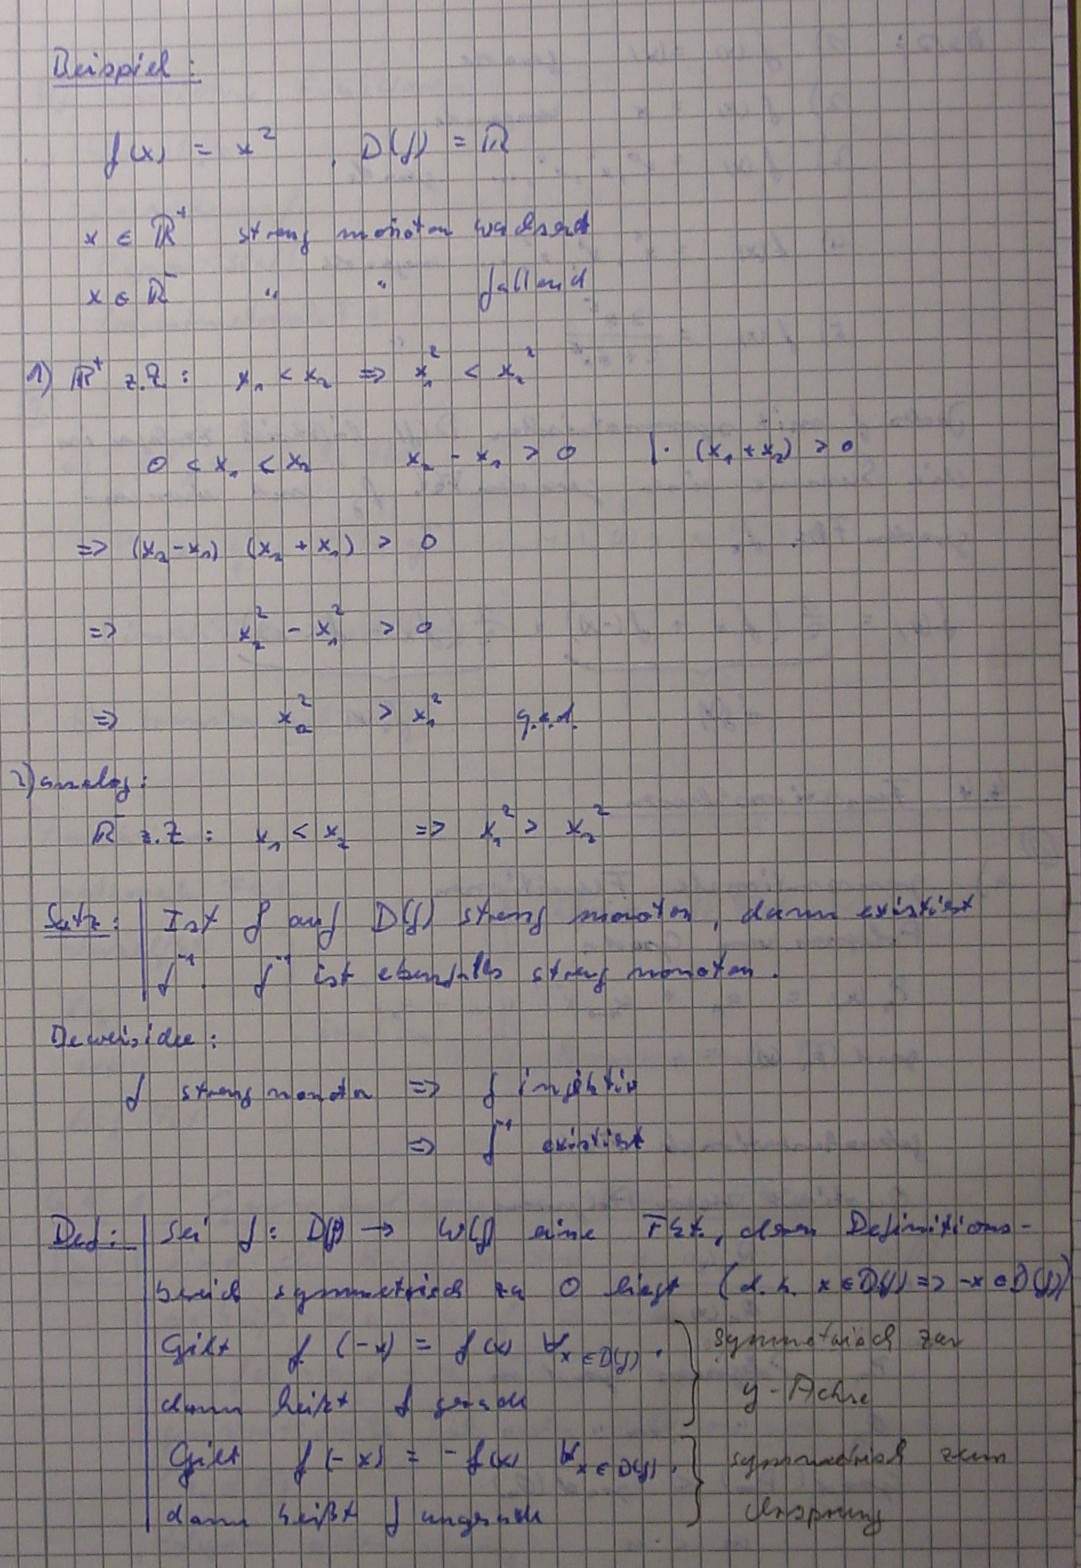 Beispiel:
f(x) = x² , D(f) = ℝ
x ∈ ℝ⁺ streng monoton wachsend
x ∈ ℝ⁻ " " fallend
1) ℝ⁺ z.Z: x₁ < x₂ ⇒ x₁² < x₂²
0 < x₁ < x₂ x₂ - x₁ > 0 |· (x₁ + x₂) > 0
⇒ (x₂ - x₁) (x₂ + x₁) > 0
⇒ x₂² - x₁² > 0
⇒ x₂² > x₁² q.e.d.
2) analog:
ℝ⁻ z.Z: x₁ < x₂ ⇒ x₁² > x₂²
Satz: Ist f auf D(f) streng monoton, dann existiert
f⁻¹. f⁻¹ ist ebenfalls streng monoton.
Beweisidee:
f streng monoton ⇒ f injektiv
⇒ f⁻¹ existiert
Def: Sei f: D(f) → W(f) eine Fkt, deren Definitions-
bereich symmetrisch zu 0 liegt (d.h. x ∈ D(f) ⇒ -x ∈ D(f))
Gilt f(-x) = f(x) ∀ x ∈ D(f), } symmetrisch zur
dann heißt f gerade y-Achse
Gilt f(-x) = -f(x) ∀ x ∈ D(f), } symmetrisch zum
dann heißt f ungerade Ursprung